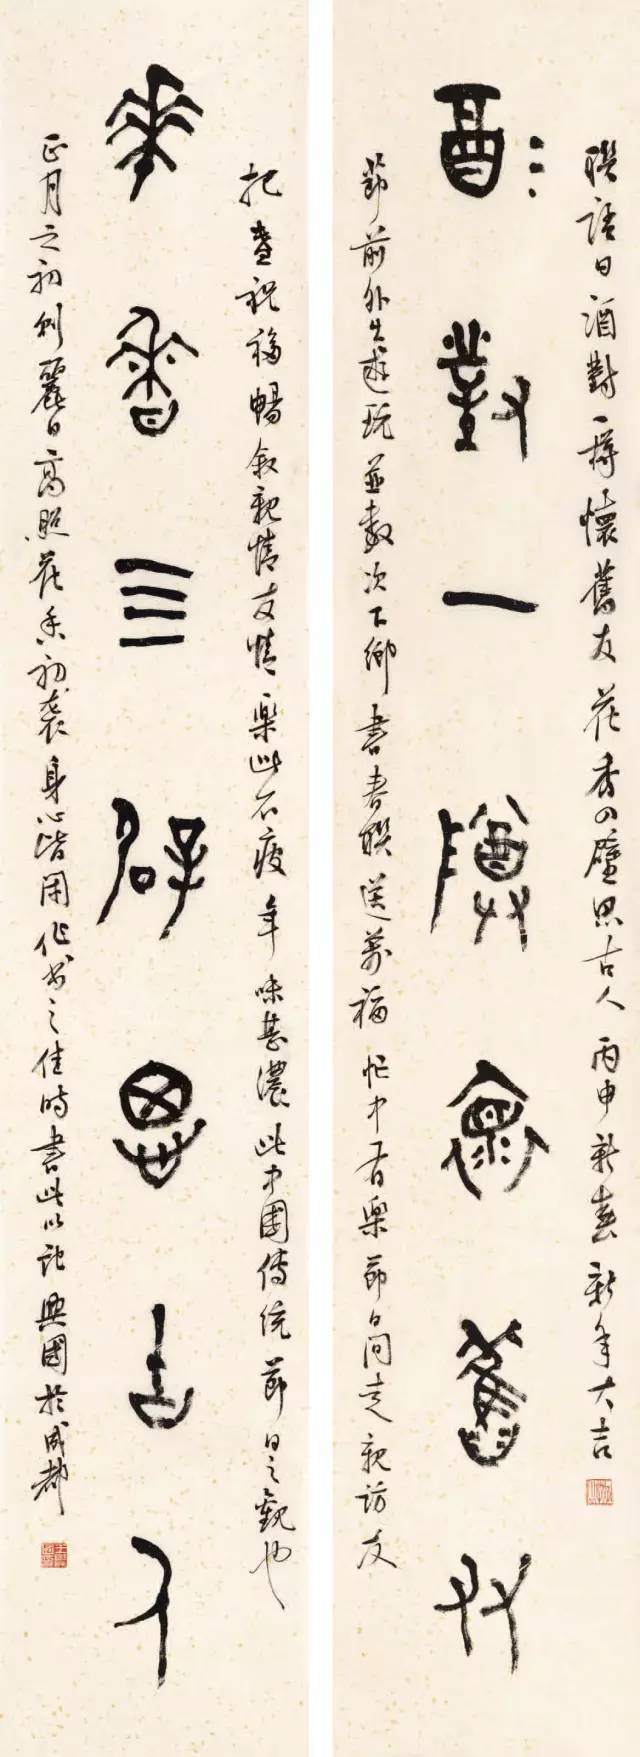 聯語曰酒對一樽懷舊友花香四壁思古人丙申新春新年大吉
酒對一尊懷舊友
節前外出遊玩並數次下鄉書春聯送萬福忙中有樂節日間走親訪友
把盞祝福暢敘親情友情樂此不疲年味甚濃此中國傳統節日之觀也
華香三辟思古人
正月之初則麗日高照花香初襲身心皆閑作書之佳時書此以記興國於成都